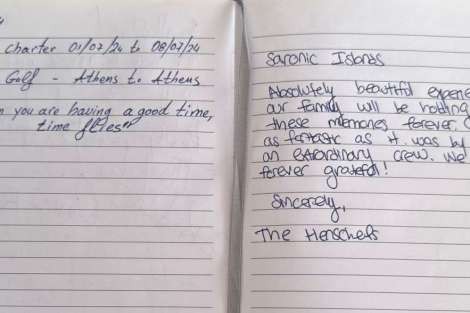 charter 01/07/24 to 08/07/24
Gulf - Athens to Athens
you are having a good time,
time flies"
Saronic Islands
Absolutely beautiful
our family will be holding
these memories forever.
as fantastic as it was by
an extraordinary crew. We
forever grateful!
Sincerely,
The Henschels